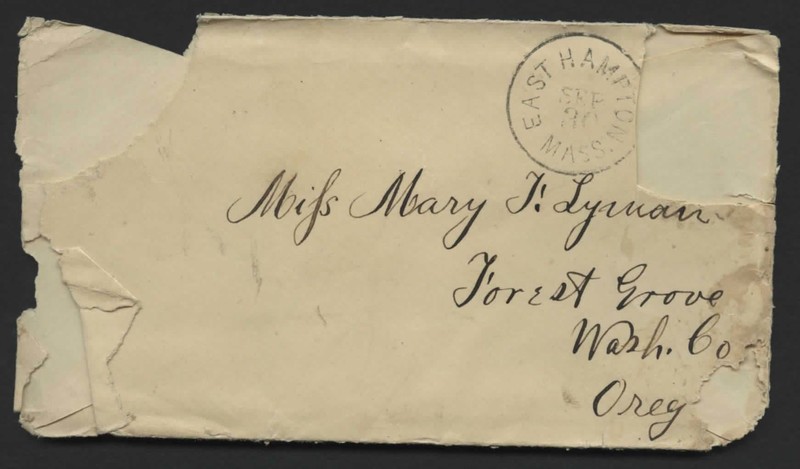 EAST HAMPTON
SEP
30
MASS.
Miss Mary F. Lyman
Forest Grove
Wash. Co
Oreg